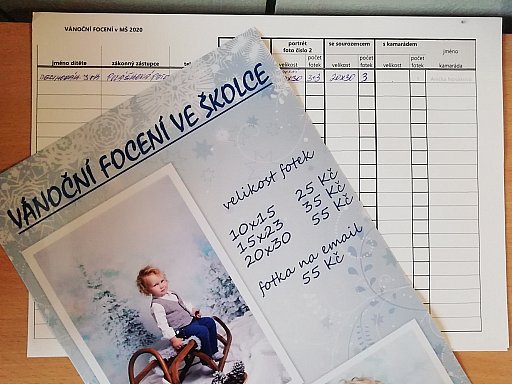 VÁNOČNÍ FOCENÍ v MŠ 2020
jméno dítěte
zákonný zástupce
portrét
foto číslo 2
velikost
počet
fotek
se sourozencem
velikost
počet
fotek
s kamarádem
velikost
počet
fotek
jméno
kamaráda
3+3 20x30 3
VÁNOČNÍ FOCENÍ VE ŠKOLCE
velikost fotek
10x15 25 Kč
15x23 35 Kč
20x30 55 Kč
fotka na email
55 Kč